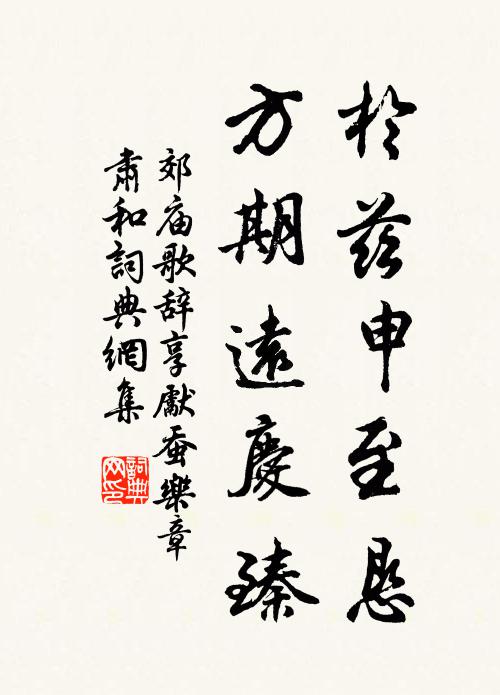 於茲申至恳
方期遠慶臻
郊庙歌辞享獻蚕樂章
肅和詞典網集
詞典
网印